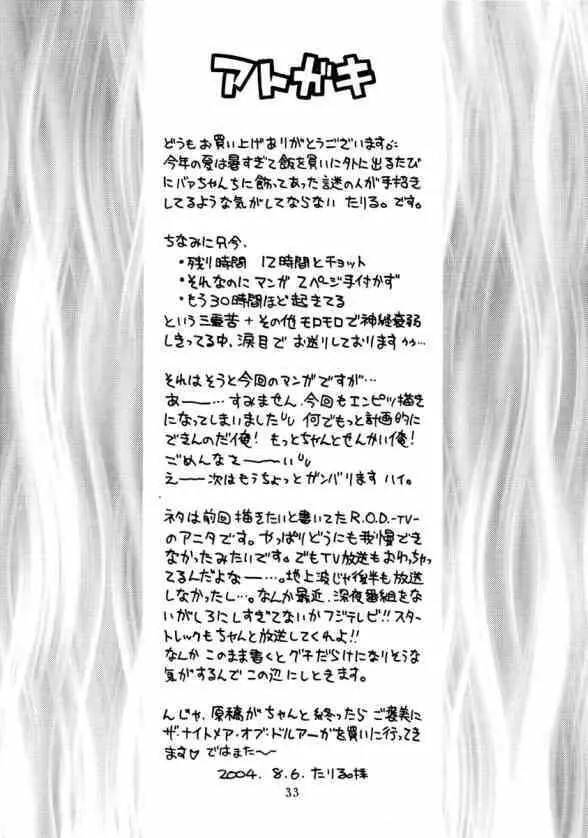 アトガキ
どうもお買い上げありがとうございます♪
今年の夏は暑すぎて飯を買いに外に出るたび
にバァちゃんちに飾ってあった謎の人が手招き
してるような気がしてならない たりる。です。
ちなみに只今、
・残り時間 12時間とチョット
・それなのに マンガ 2ページ手付かず
・もう30時間ほど起きてる
という三重苦+その他モロモロで神経衰弱
しきってる中、涙目で お送りしております
それはそうと今回のマンガですが…
あー——…すみません、今回もエンピツ描き
になってしまいました 何でもっと計画的に
できんのだ俺! もっとちゃんとせんかい俺!
ごめんなさ———い
え——次はもうちょっとガンバリます ハイ。
ネタは前回描きたいと書いてたR.O.D.-TV-
のアニタです。やっぱりどうにも我慢でき
なかったみたいです。でもTV放送もおわっちゃ
ってるんだよな——…。地上波じゃ後半も放送
しなかったし…。なんか最近、深夜番組をな
いがしろにしすぎてないかフジテレビ!!スター
トレックもちゃんと放送してくれよ!!
なんか このまま書くと グチだらけになりそうな
気がするんで この辺にしときます。
んじゃ、原稿がちゃんと終ったら ご褒美に
ザ・ナイトメア・オブ・ドルアーガを買いに行ってき
ます♡ ではまた〜
2004. 8.6. たりる。様
33